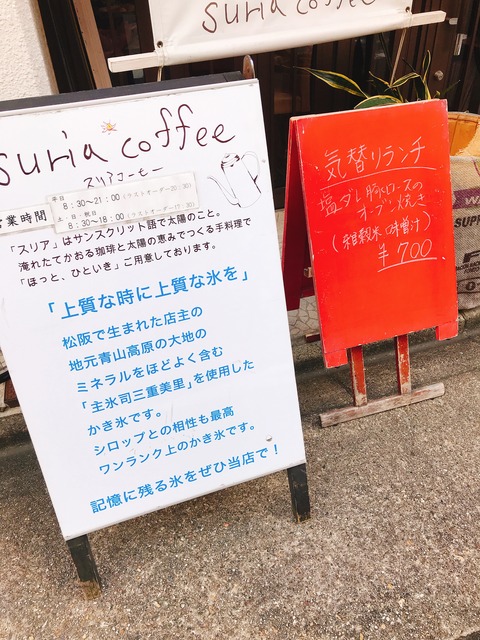 suria coffee
suria coffee
スリアコーヒー
営業時間
平日
8:30~21:00(ラストオーダー20:30)
土・日・祝日
8:30~18:00(ラストオーダー17:30)
「スリア」はサンスクリット語で太陽のこと。
淹れたてかおる珈琲と太陽の恵みでつくる手料理で
「ほっと、ひといき」ご用意しております。
「上質な時に上質な氷を」
松阪で生まれた店主の
地元青山高原の大地の
ミネラルをほどよく含む
「主氷司三重美里」を使用した
かき氷です。
シロップとの相性も最高
ワンランク上のかき氷です。
記憶に残る氷をぜひ当店で!
気替りランチ
塩ダレ豚ロースの
オーブン焼き
(雑穀米・味噌汁)
¥700
SUPP